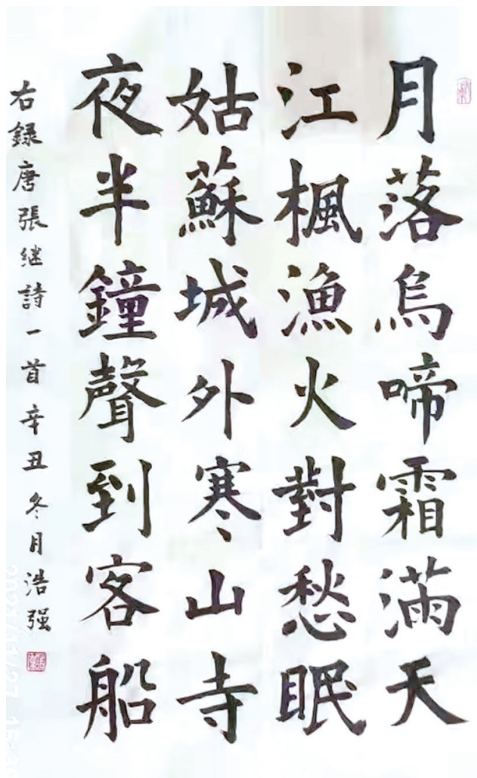 月落烏啼霜滿天
江楓漁火對愁眠
姑蘇城外寒山寺
夜半鐘聲到客船
右録唐張继詩一首辛丑冬月浩强